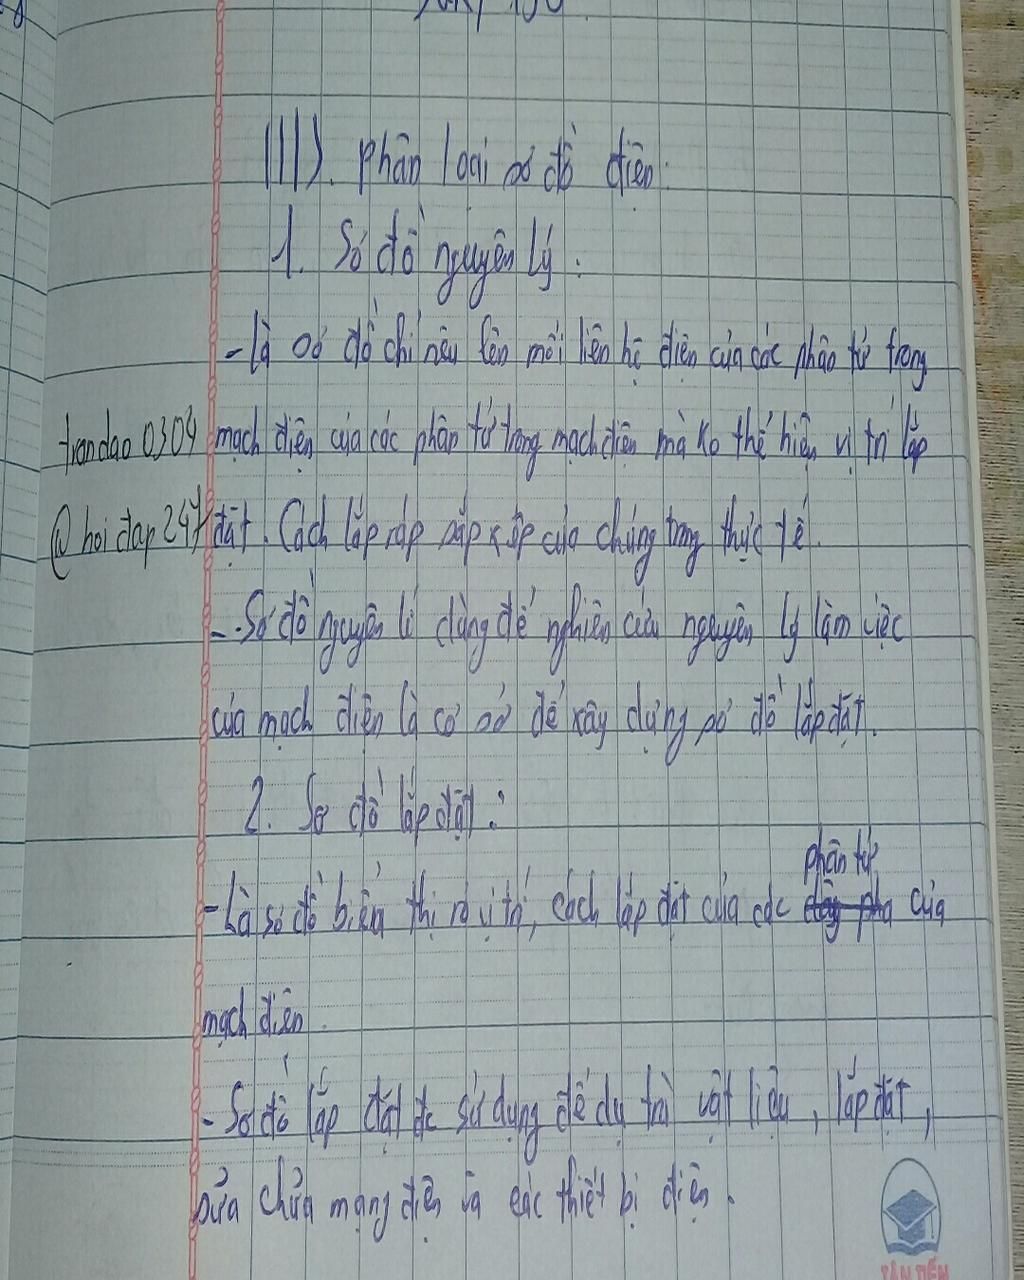 III). phân loại sơ đồ điện:
1. Sơ đồ nguyên lý:
- Là sơ đồ chỉ nêu lên mối liên hệ điện của các phần tử trong
trandao0304 mạch điện của các phần tử trong mạch điện mà ko thể hiện vị trí lắp
@hoidap247 đặt. Cách lắp ráp sắp xếp của chúng trong thực tế.
- Sơ đồ nguyên lí dùng để nghiên cứu nguyên lý làm việc
của mạch điện là cơ sở để xây dựng sơ đồ lắp đặt.
2. Sơ đồ lắp đặt:
phần tử
- Là sơ đồ biểu thị rõ vị trí, cách lắp đặt của các của
mạch điện.
- Sơ đồ lắp đặt đc sử dụng để dự trù vật liệu, lắp đặt,
sửa chữa mạng điện và các thiết bị điện.
TÂN TIẾN